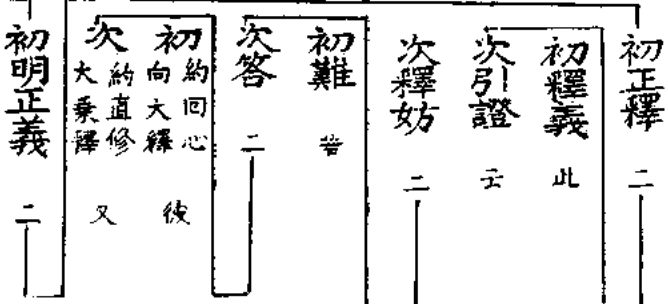 初正釋 二
初釋義 此
次引證 云
次釋妨 二
初難 若
次答 二
初約回心向大釋 彼
次約直修大乘釋 又
初明正義 二